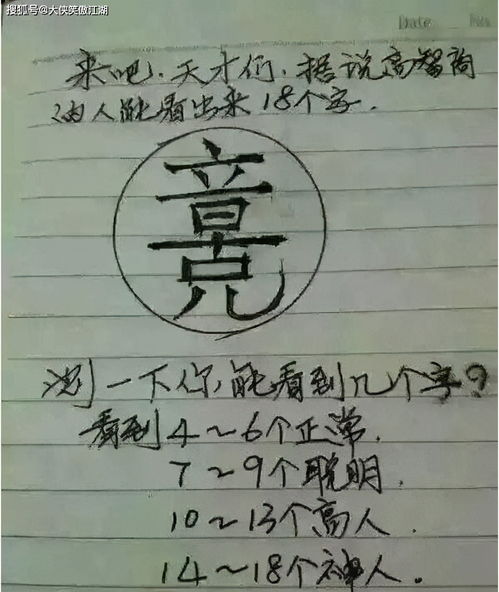 搜狐号@大侠笑傲江湖
Date No
来吧、天才们、据说高智商
的人能看出来18个字.
测一下你,能看到几个字?
看到4~6个正常.
7~9个聪明.
10~13个高人.
14~18个神人.